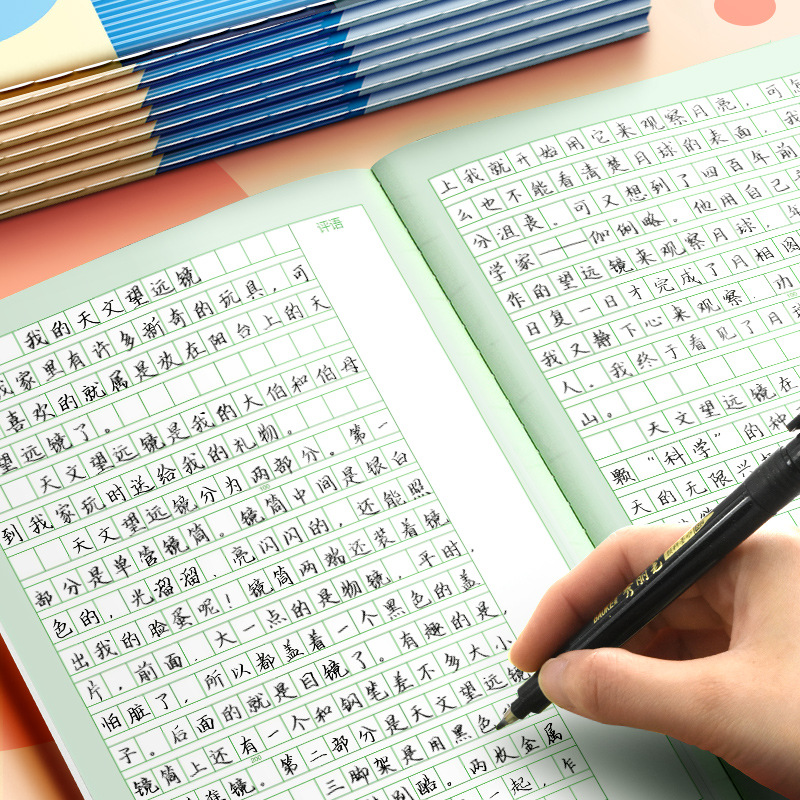 评语
我的天文望远镜
我家里有许多新奇的玩具，可
喜欢的就属是放在阳台上的天
望远镜了。
天文望远镜是我的大伯和伯母
到我家玩时送给我的礼物。
天文望远镜分为两部分。第一
部分是单管镜筒。镜筒中间是银白
色的，光溜溜、亮闪闪的，还能照
出我的脸蛋呢！镜筒两端还装着镜
片，前面，大一点的是物镜，平时，
怕脏了，所以都盖着一个黑色的盖
子。后面的就是目镜了。有趣的是，
镜筒上还有一个和钢笔差不多大小
镜。第二部分是天文望远镜
三脚架是用黑色
酷。两枚金属
一起，乍
200
上我就开始用它来观察月亮，可
么也不能看清楚月球的表面，我
分沮丧。可又想到了四百年前
学家——伽俐略。他用自己
作的望远镜来观察月球，
日复一日才完成了月相图
我又静下心来观察，功
人。我终于看见了月球
山。
天文望远镜在
颗“科学”的种
天的无限